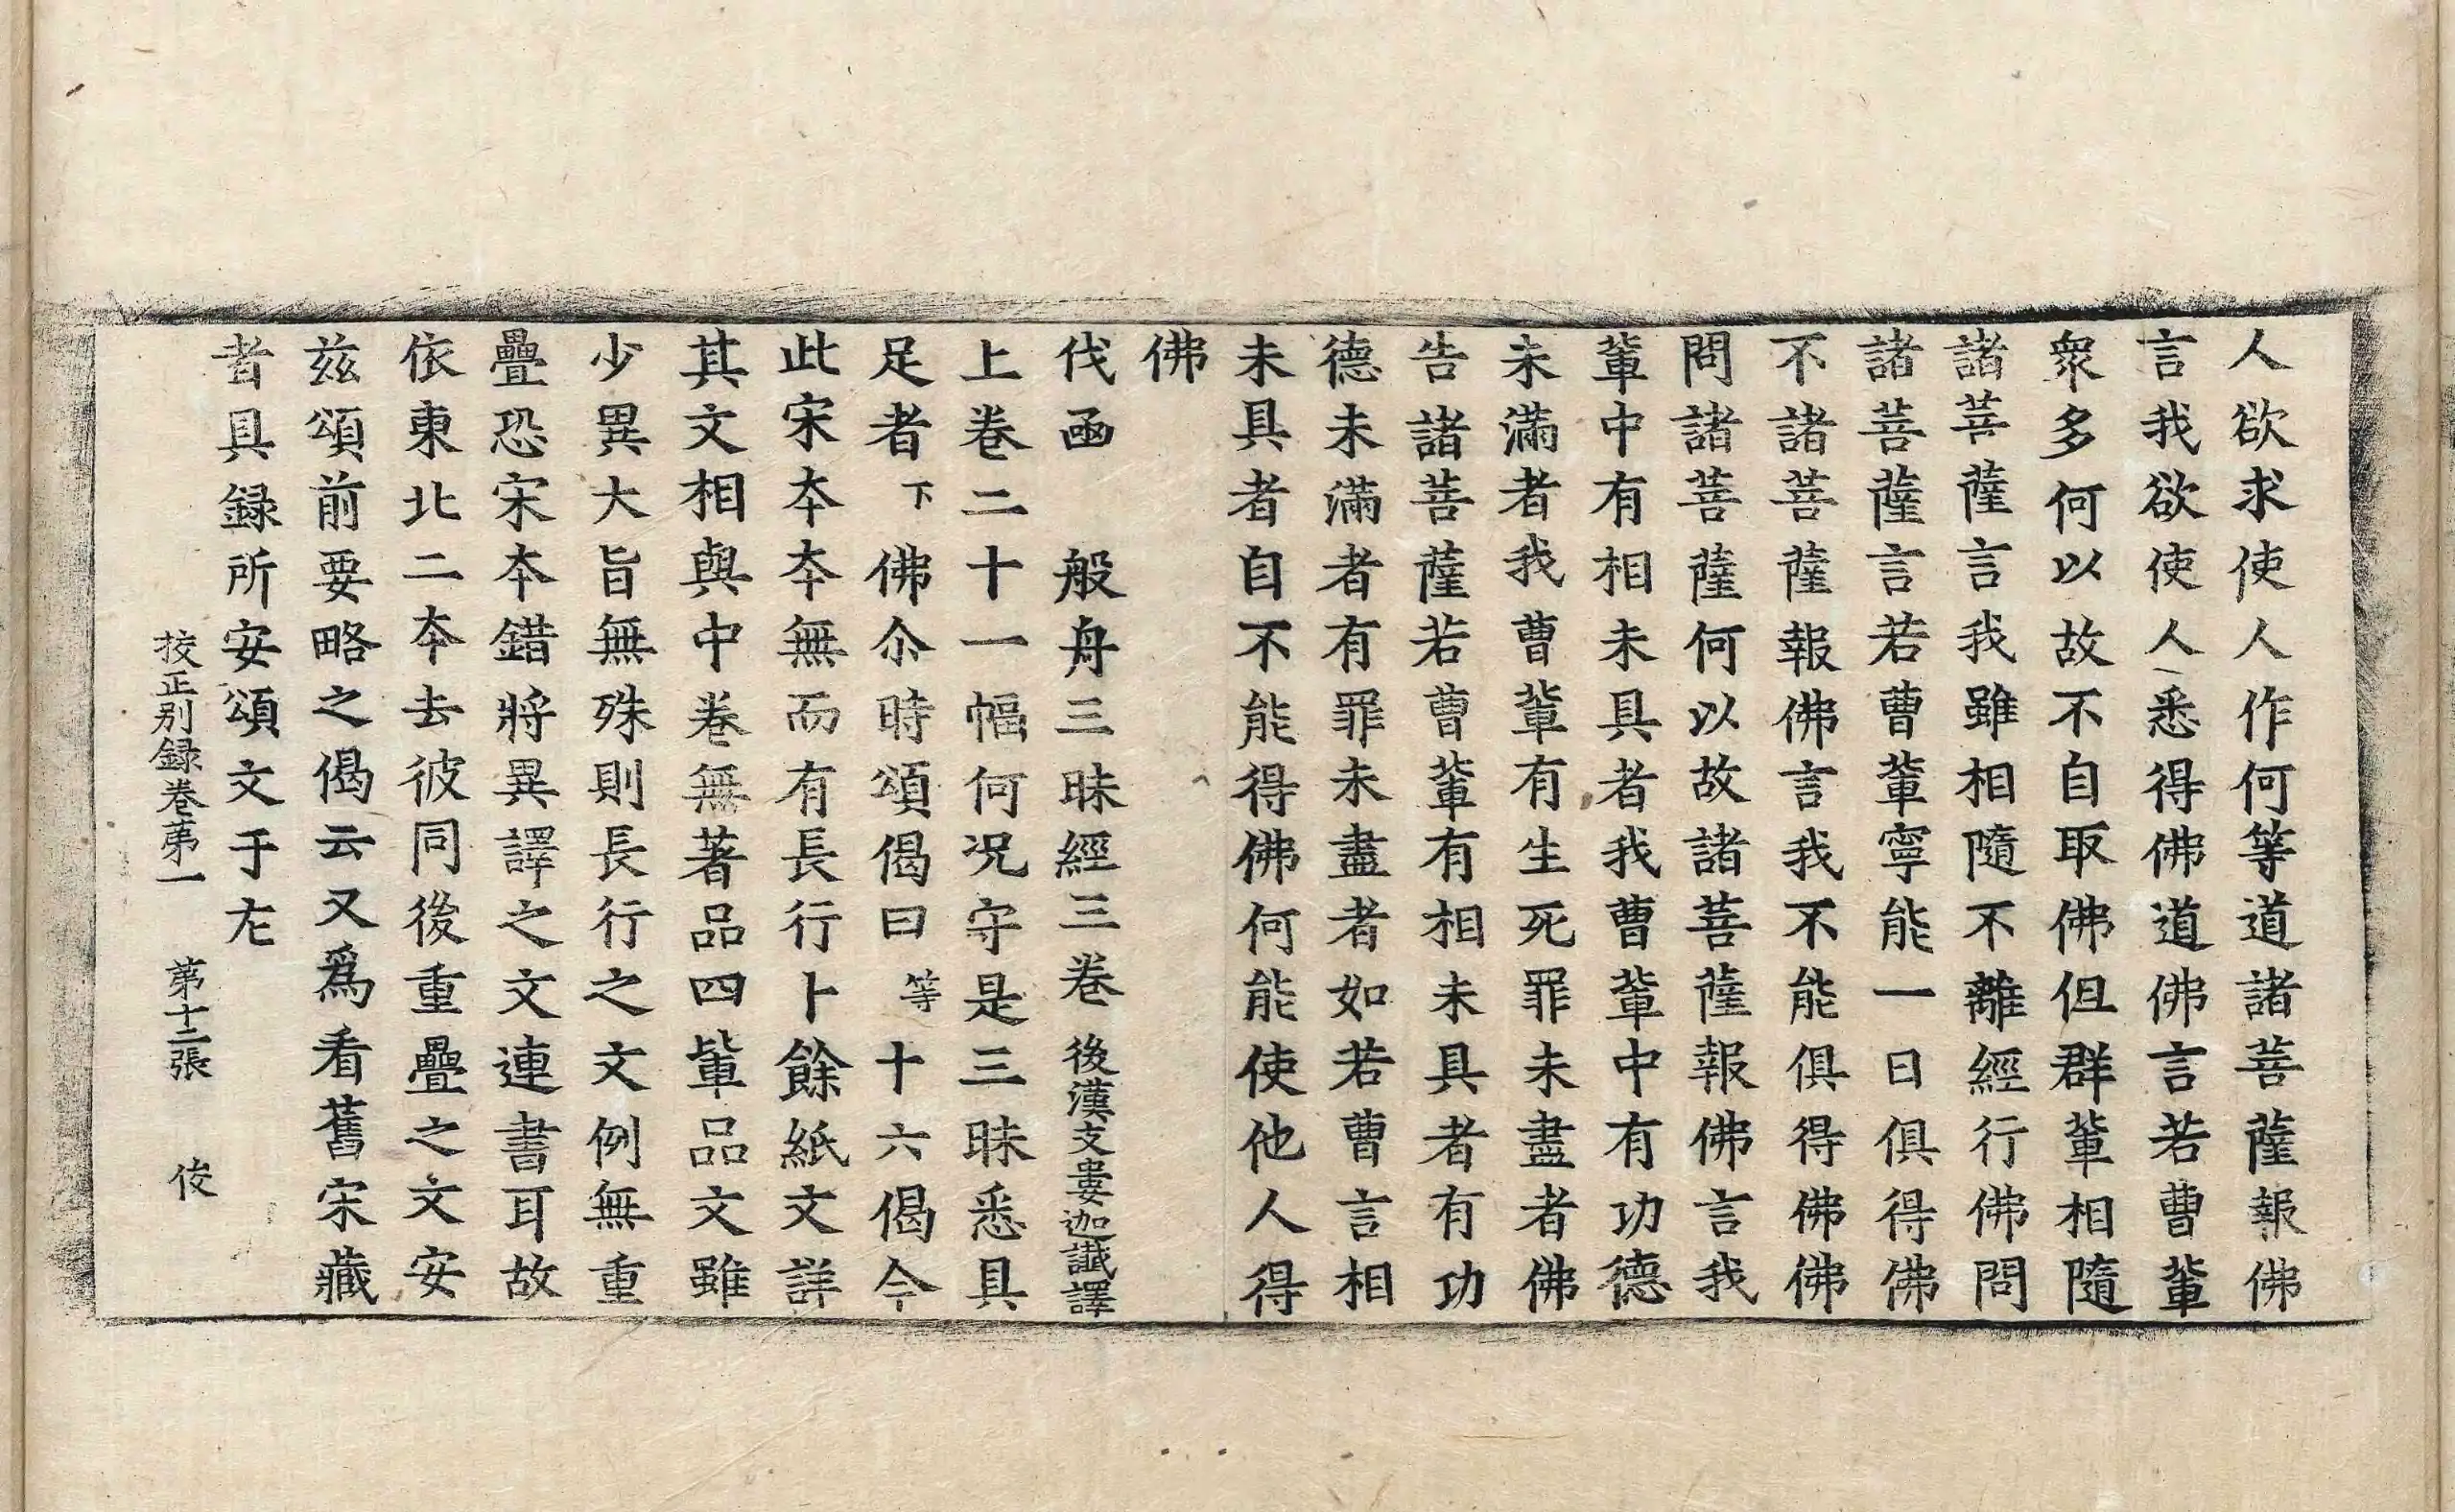 人欲求使人作何等道諸菩薩報佛
言我欲使人悉得佛道佛言若曹軰
衆多何以故不自取佛但群軰相隨
諸菩薩言我雖相隨不離經行佛問
諸菩薩言若曹軰寧能一日俱得佛
不諸菩薩報佛言我不能俱得佛佛
問諸菩薩何以故諸菩薩報佛言我
軰中有相未具者我曹軰中有功德
未滿者我曹軰有生死罪未盡者佛
告諸菩薩若曹軰有相未具者有功
德未滿者有罪未盡者如若曹言相
未具者自不能得佛何能使他人得
佛
伐函 般舟三昧經三卷 後漢支婁迦讖譯
上卷二十一幅何況守是三昧悉具
足者下佛尒時頌偈曰等十六偈今
此宋夲夲無而有長行卜餘紙文詳
其文相與中卷無著品四軰品文雖
少異大旨無殊則長行之文例無重
疊恐宋夲錯將異譯之文連書耳故
依東北二夲去彼同後重疊之文安
兹頌前要略之偈云又爲看舊宋藏
者具録所安頌文于左
挍正别録卷苐一 第十二張 俊